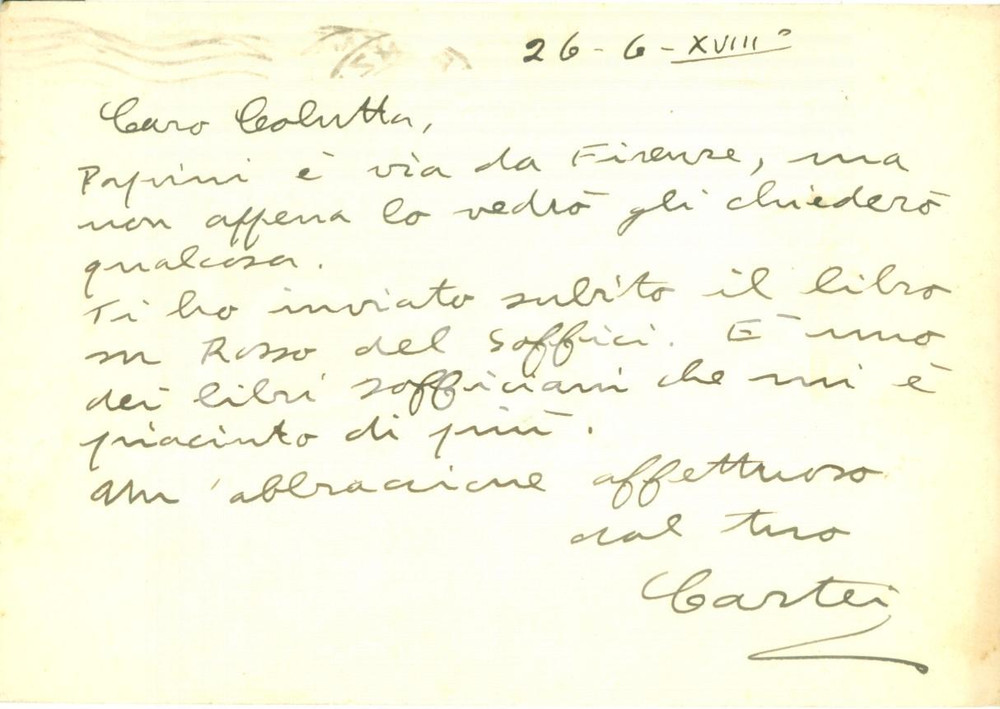 26-6-XVIII°
Caro Colutta,
Papini è via da Firenze, ma
non appena lo vedrò gli chiederò
qualcosa.
Ti ho inviato subito il libro
su Rosso del Soffici. È uno
dei libri sofficiani che mi è
piaciuto di più.
Un'abbraccione affettuoso
dal tuo
Cartei